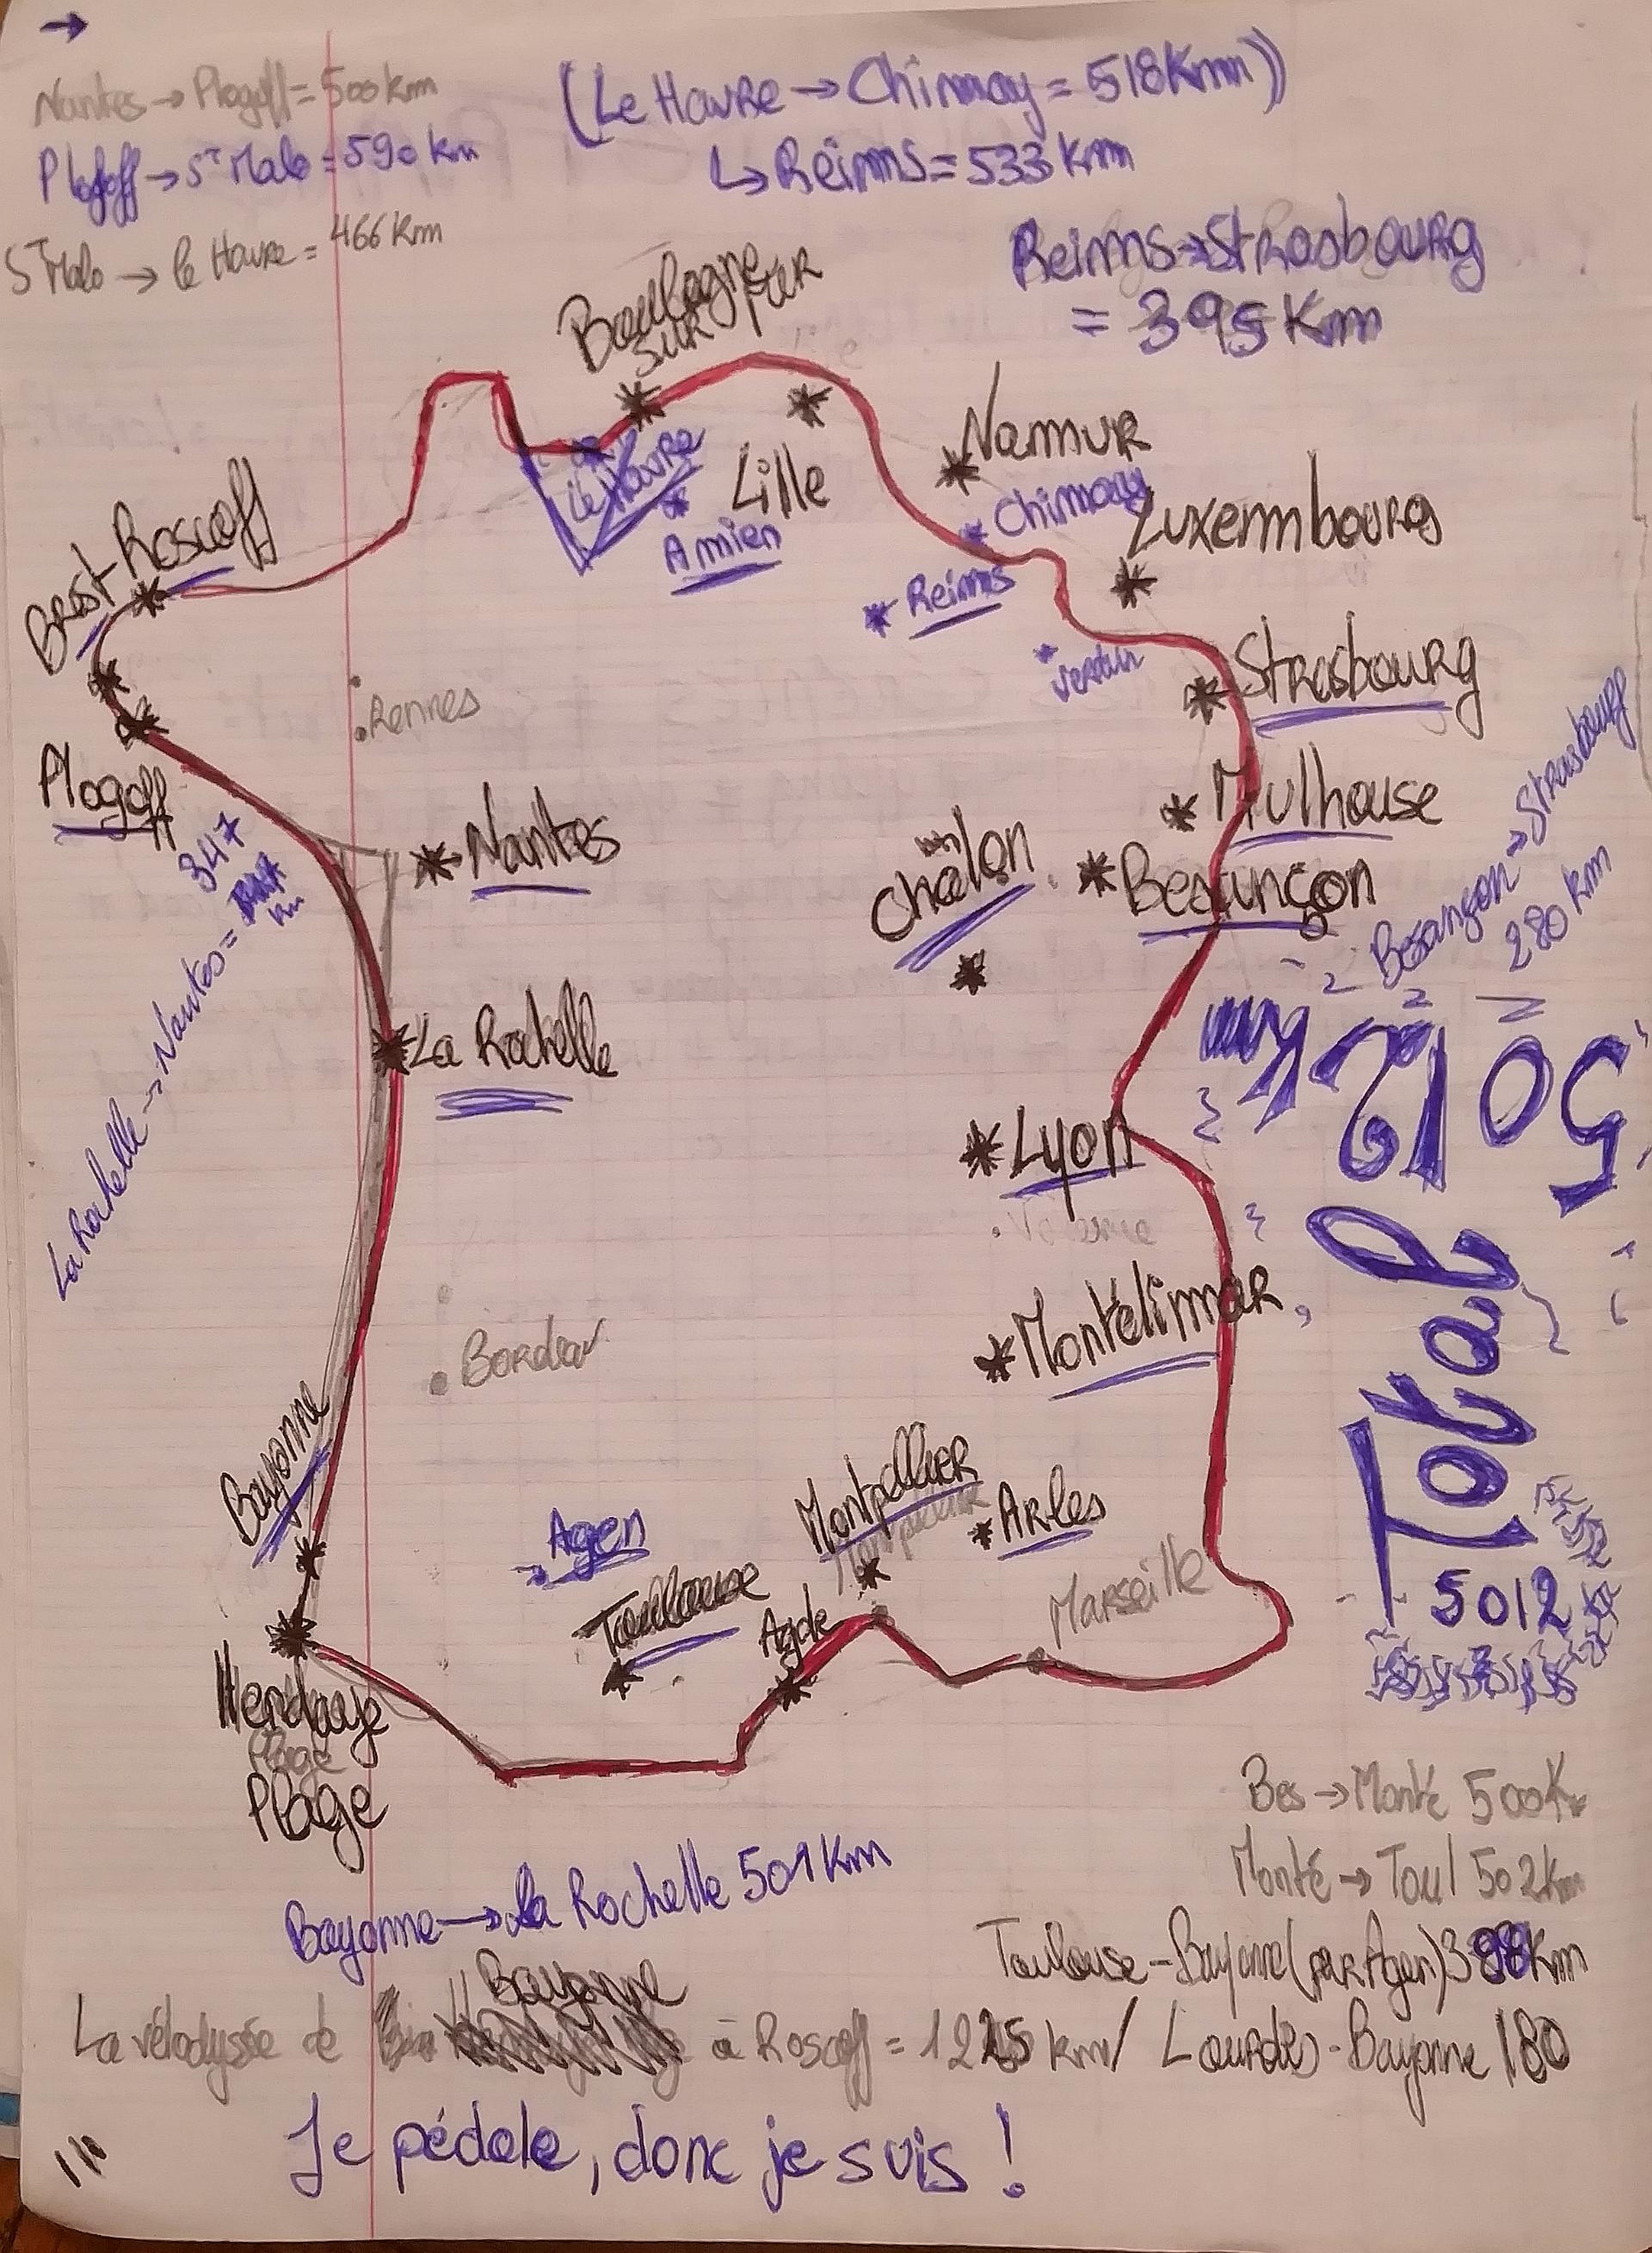 Nantes → Plogoff = 500 km
Plogoff → St Malo = 590 km
St Malo → le Havre = 466 Km
(Le Havre → Chimay = 518 Km))
↳ Reims = 533 km
Reims → Strasbourg
= 395 Km
Boulogne
SUR MER
Le Havre
Amien
Lille
Namur
Chimay
Luxembourg
Reims
Verdun
Strasbourg
Roscoff
Brest
Plogoff
Rennes
Nantes
Mulhouse
Châlon
Besançon
Besançon → Strasbourg
280 km
347
La Rochelle → Nantes =
km
La Rochelle
Lyon
Valence
Montélimar,
Total
5012 Km
5012
Bordeau
Bayonne
Agen
Toulouse
Montpellier
Agde
Arles
Marseille
Hendaye
Plage
Plage
Bes → Monté 500 K
Monté → Toul 502 km
Toulouse - Bayonne (par Agen) 388 Km
Bayonne → La Rochelle 501 Km
Bayonne
La vélodyssée de à Roscoff = 1225 km / Lourdes - Bayonne 180
Je pédale, donc je suis !